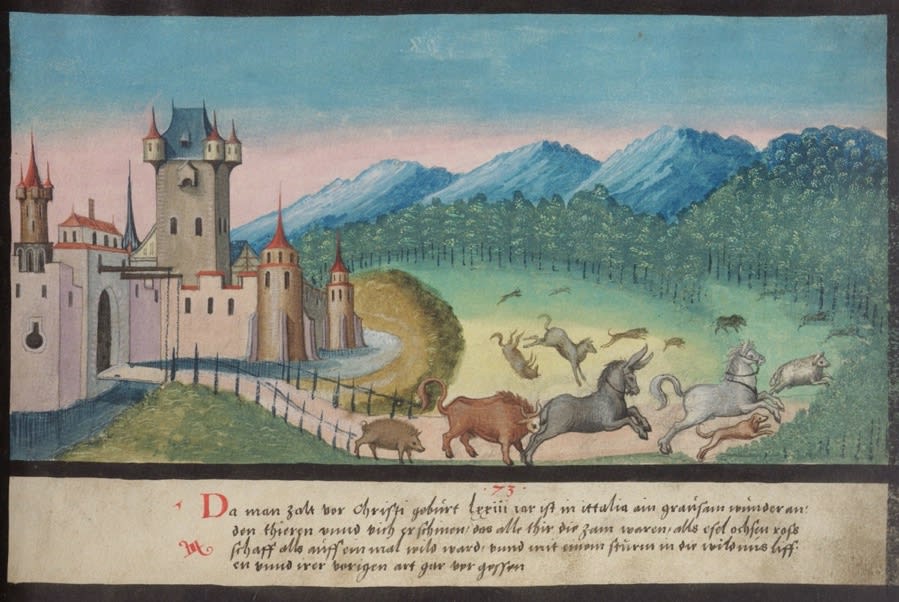 · 73 ·
Da man zalt vor Christi gebürt lxxiii iar ist in ittalia ain graüsam wünder an
den thieren vnnd vich erschinen, das alle thir die zam waren, als esel ochsen ross
schaff alls auff ein mal wild ward, vnnd mit einem stürm in die wildnüs liff
en vnnd irer vorigen art gar vergessen